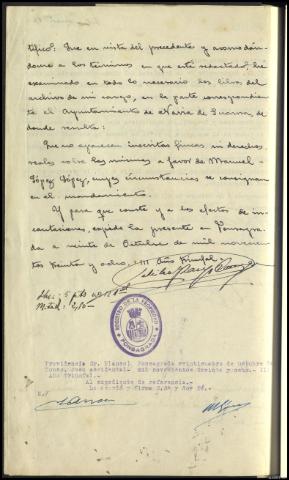 tifico: Que en vista del precedente y acomodán-
dome a los terminos en que está redactado, he
examinado en todo lo necesario los libros del
archivo de mi cargo, en la parte correspondien-
te al Ayuntamiento de Navia de Suarna, de
donde resulta:
Que no aparecen inscritas fincas ni derechos
reales sobre las mismas a favor de Manuel
López López, cuyas circunstancias se consignan
en el mandamiento.
Y para que conste y a los efectos de in-
cautaciones, expido la presente en Fonsagra-
da a veinte de Octubre de mil novecien-
tos treinta y ocho.- III Año Triunfal.-
REGISTRO DE LA PROPIEDAD
FONSAGRADA
Providencia Sr. Blanco. Fonsagrada veintiuno de octubre de
Juez accidental. mil novecientos treinta y ocho.- III
AÑO TRIUNFAL.-
Al expediente de referencia.
Lo acordó y firma S.Sª y doy fé.